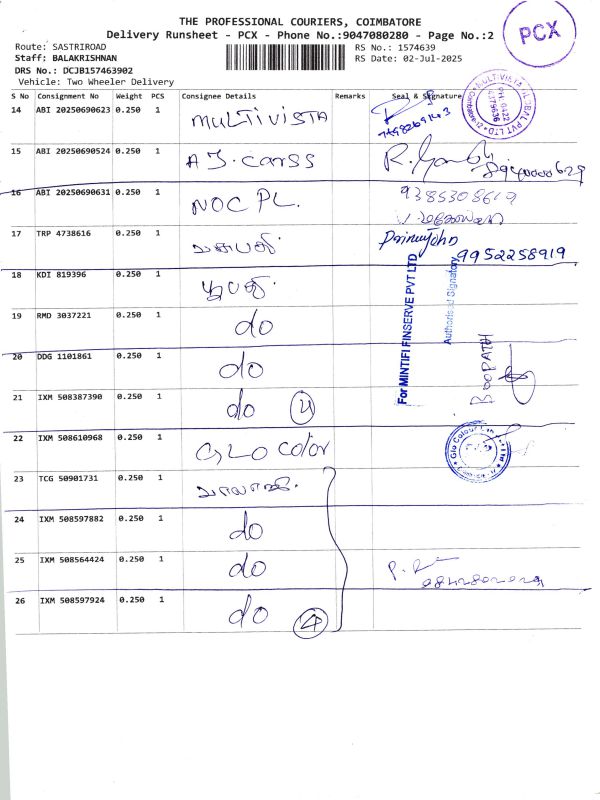 THE PROFESSIONAL COURIERS, COIMBATORE
Delivery Runsheet - PCX - Phone No.:9047080280 - Page No.:2
PCX
Route: SASTRIROAD
RS No.: 1574639
Staff: BALAKRISHNAN
RS Date: 02-Jul-2025
DRS No.: DCJB157463902
Vehicle: Two Wheeler Delivery
S No Consignment No Weight PCS Consignee Details Remarks Seal & Signature
14 ABI 20250690623 0.250 1 MULTIVISTA
MULTIVISTA GLOBAL PVT LTD
15 ABI 20250690524 0.250 1 A J. Carss
16 ABI 20250690631 0.250 1 NOC PL. 9385308619
17 TRP 4738616 0.250 1
9952258919
18 KDI 819396 0.250 1 பூபதி.
For MINTIFI FINSERVE PVT LTD
Authorised Signatory
19 RMD 3037221 0.250 1 do
20 DDG 1101861 0.250 1 do
BOOPATHI
21 IXM 508387390 0.250 1 do 4
22 IXM 508610968 0.250 1 GLO color
23 TCG 50901731 0.250 1
24 IXM 508597882 0.250 1 do
25 IXM 508564424 0.250 1 do
26 IXM 508597924 0.250 1 do 4